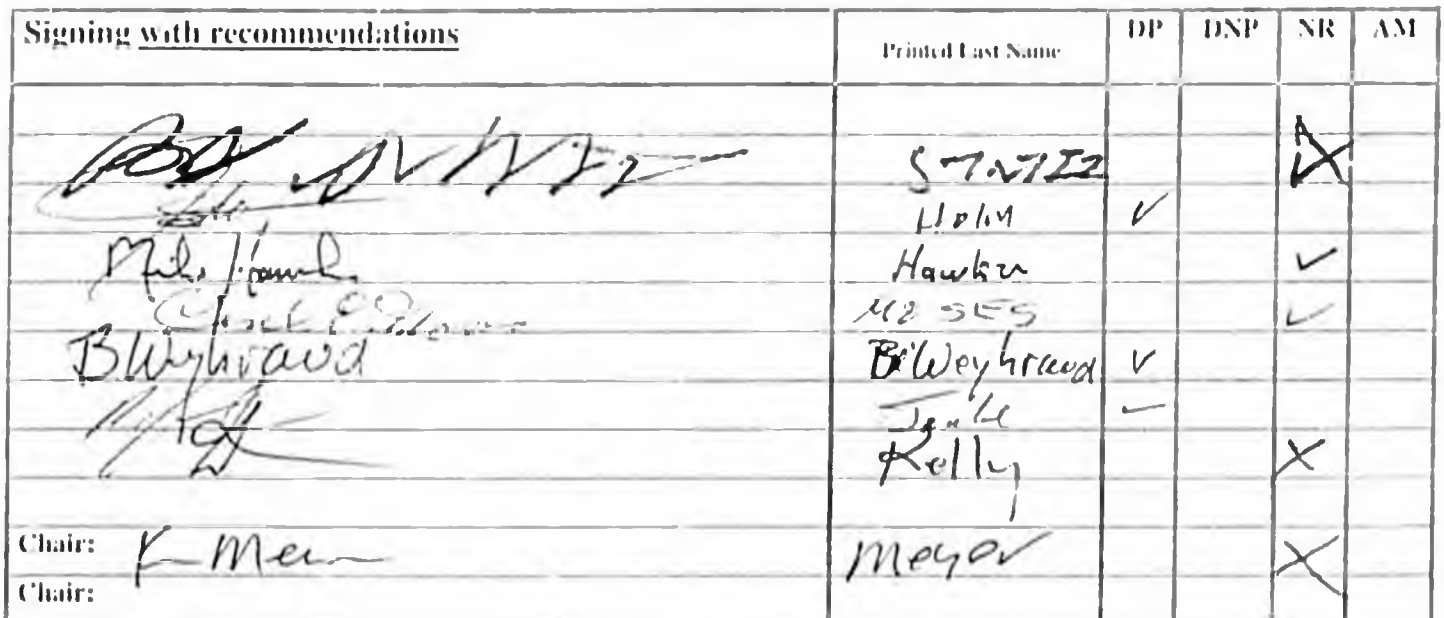 Signing with recommendations Printed Last Name DP DNP NR AM
STOLTZE
Holm ✓
Mike Hawker Hawker ✓
MOSES ✓
BWeyhrauch B Weyhrauch ✓
Kelly X
Chair: K Meyer Meyer X
Chair: